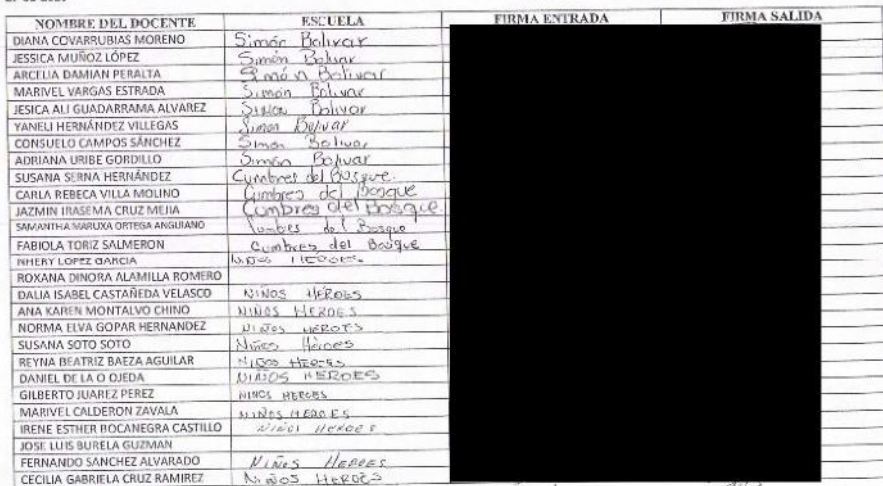 NOMBRE DEL DOCENTE ESCUELA FIRMA ENTRADA FIRMA SALIDA
DIANA COVARRUBIAS MORENO Simón Bolivar
JESSICA MUÑOZ LÓPEZ Simón Bolivar
ARCELIA DAMIAN PERALTA Simón Bolivar
MARIVEL VARGAS ESTRADA Simón Bolivar
JESICA ALI GUADARRAMA ALVAREZ Simon Bolivar
YANELI HERNÁNDEZ VILLEGAS Simon Bolivar
CONSUELO CAMPOS SÁNCHEZ Simon Bolivar
ADRIANA URIBE GORDILLO Simón Bolivar
SUSANA SERNA HERNÁNDEZ Cumbres del Bosque.
CARLA REBECA VILLA MOLINO Cumbres del Bosque
JAZMIN IRASEMA CRUZ MEJIA Cumbres del Bosque
SAMANTHA MARUXA ORTEGA ANGUIANO Cumbres del Bosque
FABIOLA TORIZ SALMERON Cumbres del Bosque
NHERY LOPEZ GARCIA NIÑOS HEROES
ROXANA DINORA ALAMILLA ROMERO
DALIA ISABEL CASTAÑEDA VELASCO NIÑOS HÉROES
ANA KAREN MONTALVO CHINO NIÑOS HEROES
NORMA ELVA GOPAR HERNANDEZ NIÑOS HEROES
SUSANA SOTO SOTO Niños Héroes
REYNA BEATRIZ BAEZA AGUILAR NIÑOS HEROES
DANIEL DE LA O OJEDA NIÑOS HEROES
GILBERTO JUAREZ PEREZ NIÑOS HEROES
MARIVEL CALDERON ZAVALA NIÑOS HEROES
IRENE ESTHER BOCANEGRA CASTILLO NIÑOS HEROES
JOSE LUIS BURELA GUZMAN
FERNANDO SANCHEZ ALVARADO NIÑOS HEROES
CECILIA GABRIELA CRUZ RAMIREZ NIÑOS HEROES